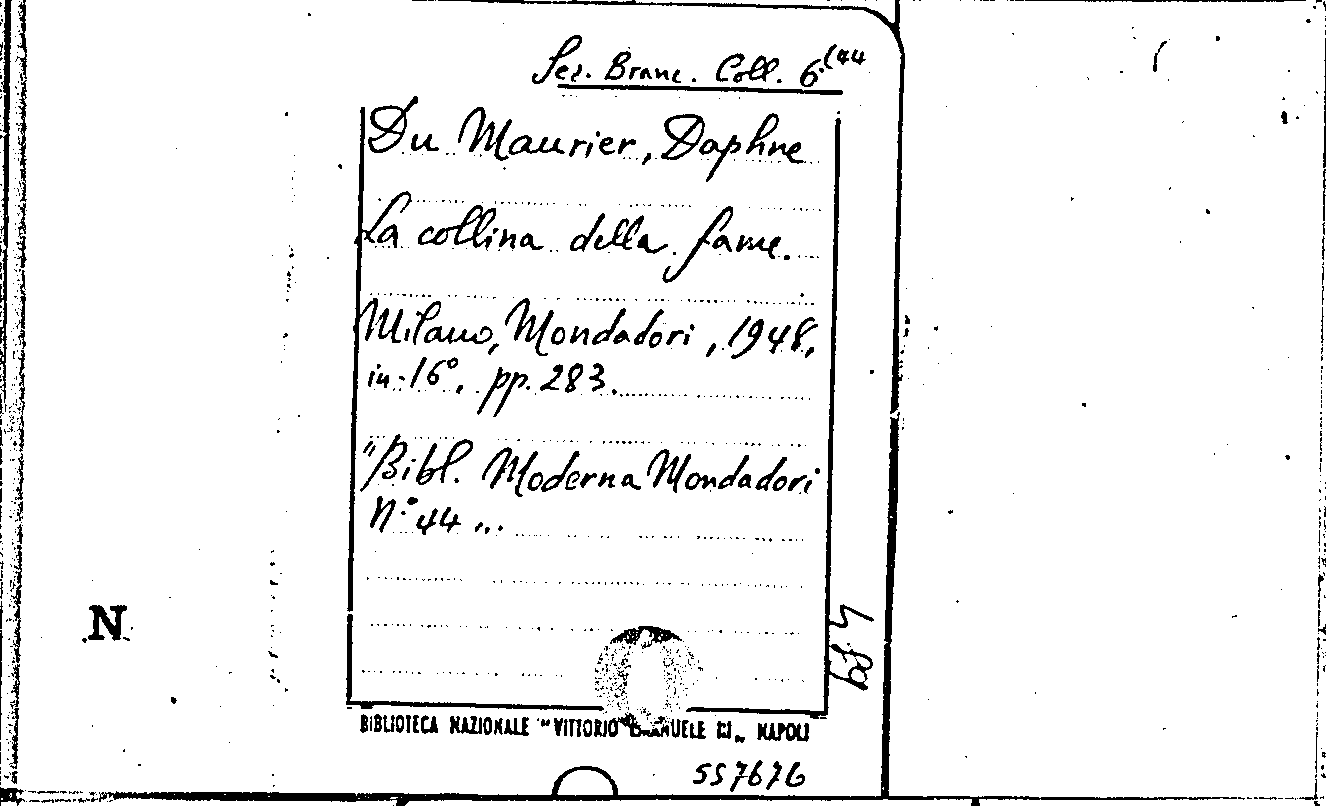 Sez. Branc. Coll. 6.(44
Du Maurier, Daphne
La collina della fame.
Milano, Mondadori, 1948,
in-16°. pp. 283.
"Bibl. Moderna Mondadori
N° 44 ...
N
BIBLIOTECA NAZIONALE "VITTORIO EMANUELE III„ NAPOLI
557676